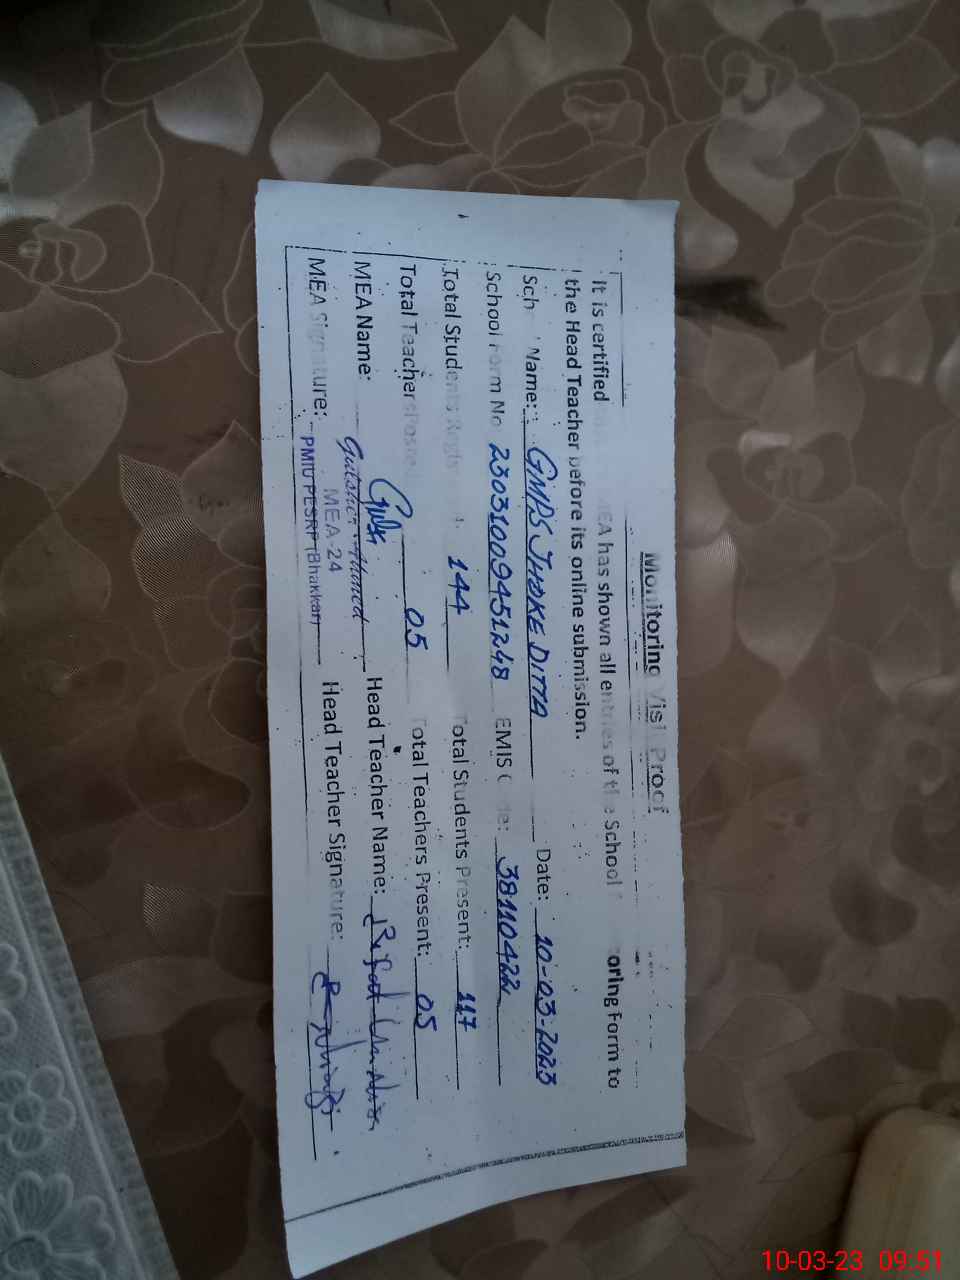 Monitoring Visit Proof
It is certified MEA has shown all entries of the School oring Form to
the Head Teacher before its online submission.
Sch Name: GMPS JHOKE DITTA Date: 10-03-2023
School Form No 2303100945 1248 EMIS C de: 38110422
Total Students Regis 144 Total Students Present: 117
Total Teachers Posted 05 Total Teachers Present: 05
MEA Name: Gulsher Ahmed Head Teacher Name:
MEA Signature: Head Teacher Signature:
MEA-24
PMIU PESRP (Bhakkar)
10-03-23 09:51